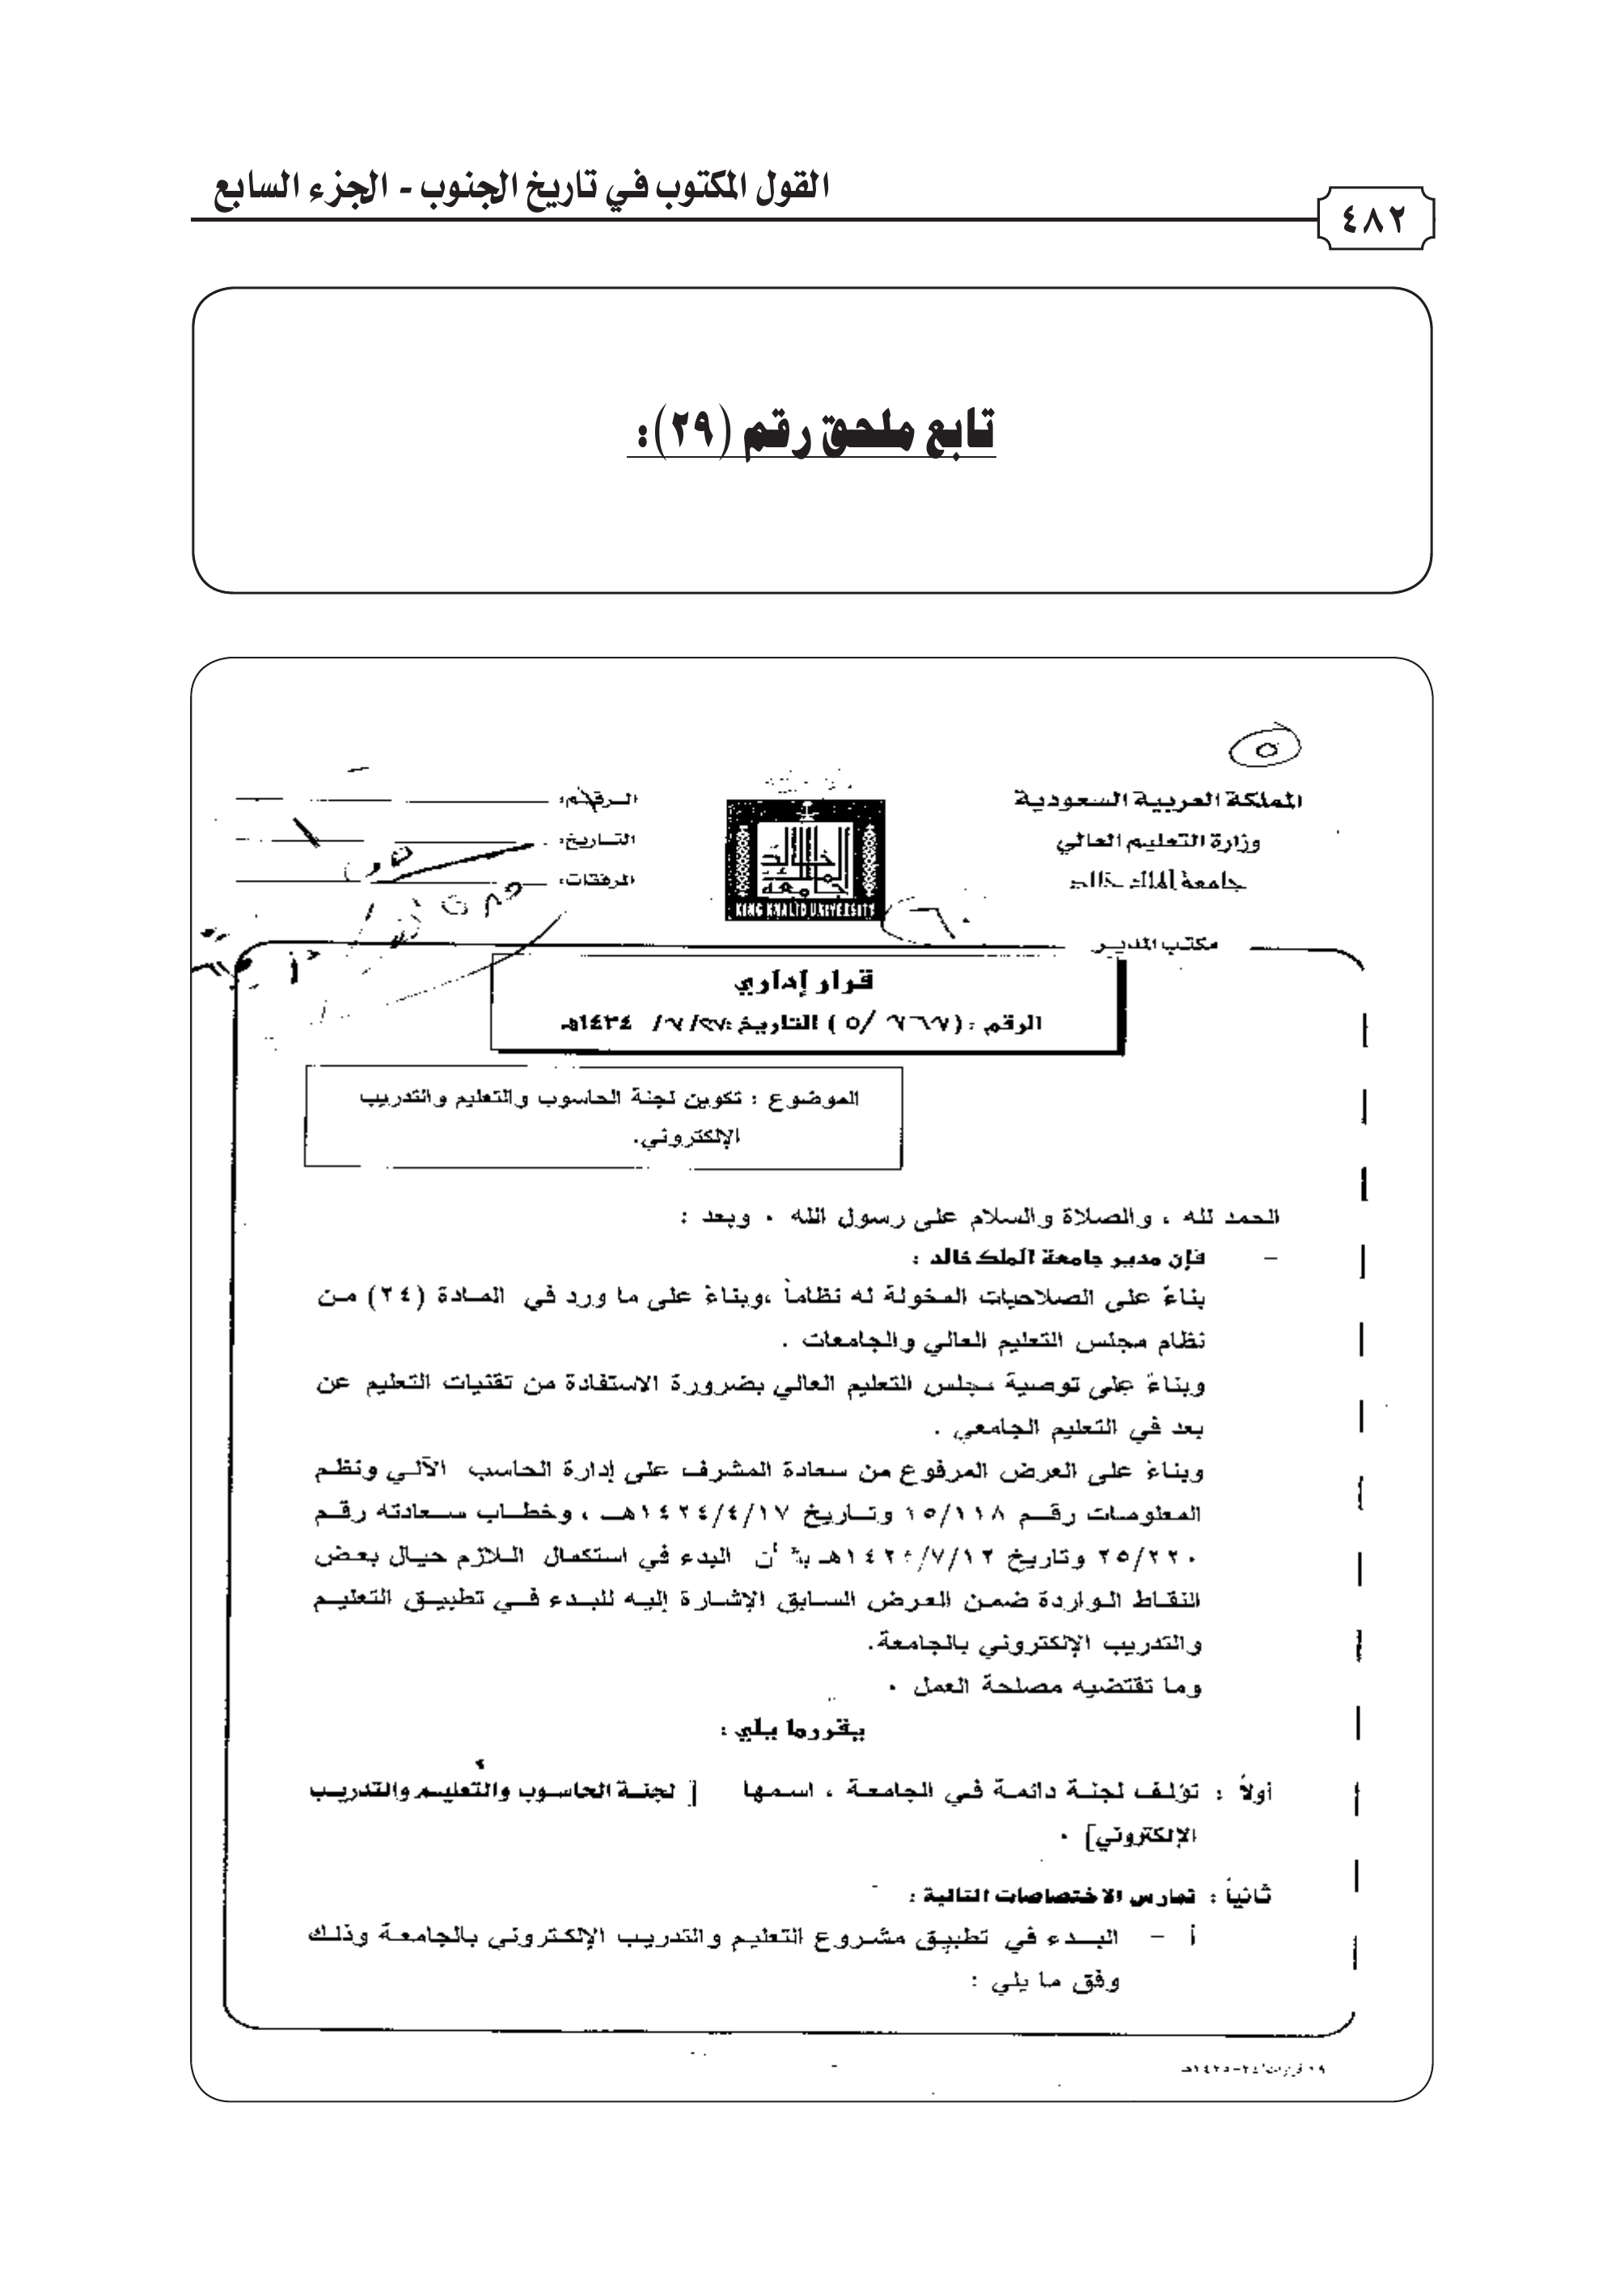 القول المكتوب في تاريخ الجنوب - الجزء السابع
٤٨٢
تابع ملحق رقم (٢٩):
٥
المملكة العربية السعودية
وزارة التعليم العالي
جامعة الملك خالد
مكتب المدير
KING KHALID UNIVERSITY
الرقم:
التاريخ:
المرفقات:
قرار إداري
الرقم : ( / ٥ ) التاريخ: / / هـ
الموضوع : تكوين لجنة الحاسوب والتعليم والتدريب
الإلكتروني.
الحمد لله ، والصلاة والسلام على رسول الله ٠ وبعد :
- فإن مدير جامعة الملك خالد :
بناءً على الصلاحيات المخولة له نظاماً ،وبناءً على ما ورد في المادة (٢٤) من
نظام مجلس التعليم العالي والجامعات .
وبناءً على توصية مجلس التعليم العالي بضرورة الاستفادة من تقنيات التعليم عن
بعد في التعليم الجامعي .
وبناءً على العرض المرفوع من سعادة المشرف على إدارة الحاسب الآلي ونظم
المعلومات رقم ١٥/١١٨ وتاريخ ١٤٢٤/٤/١٧هـ ، وخطاب سعادته رقم
٢٥/٢٢٠ وتاريخ هـ بشأن البدء في استكمال اللازم حيال بعض
النقاط الواردة ضمن العرض السابق الإشارة إليه للبدء في تطبيق التعليم
والتدريب الإلكتروني بالجامعة.
وما تقتضيه مصلحة العمل ٠
يقرر ما يلي :
أولاً : تؤلف لجنة دائمة في الجامعة ، اسمها [ لجنة الحاسوب والتعليم والتدريب
الإلكتروني] ٠
ثانياً : تمارس الاختصاصات التالية :
أ - البدء في تطبيق مشروع التعليم والتدريب الإلكتروني بالجامعة وذلك
وفق ما يلي :